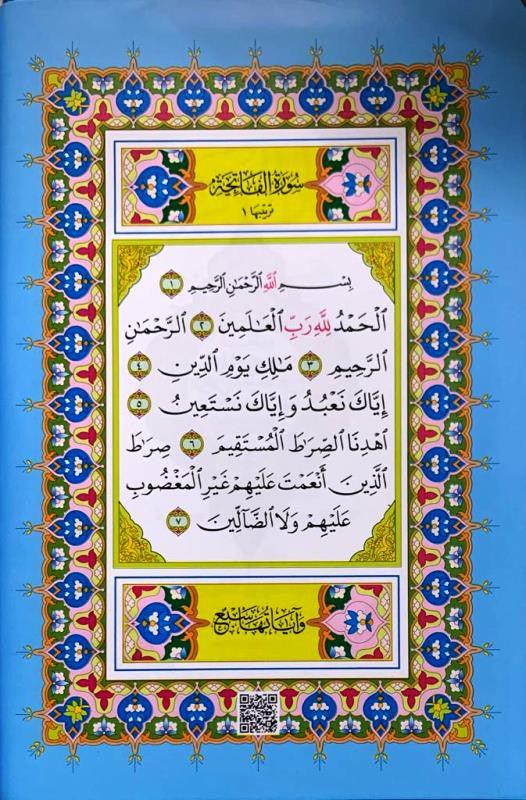 سُورَةُ الفَاتِحَةِ
تَرتِيبُهَا ١
بِسْمِ اللَّهِ الرَّحْمَٰنِ الرَّحِيمِ ١
الْحَمْدُ لِلَّهِ رَبِّ الْعَالَمِينَ ٢ الرَّحْمَٰنِ
الرَّحِيمِ ٣ مَالِكِ يَوْمِ الدِّينِ ٤
إِيَّاكَ نَعْبُدُ وَإِيَّاكَ نَسْتَعِينُ ٥
اهْدِنَا الصِّرَاطَ الْمُسْتَقِيمَ ٦ صِرَاطَ
الَّذِينَ أَنْعَمْتَ عَلَيْهِمْ غَيْرِ الْمَغْضُوبِ
عَلَيْهِمْ وَلَا الضَّآلِّينَ ٧
وَآيَاتُهَا سَبْعٌ